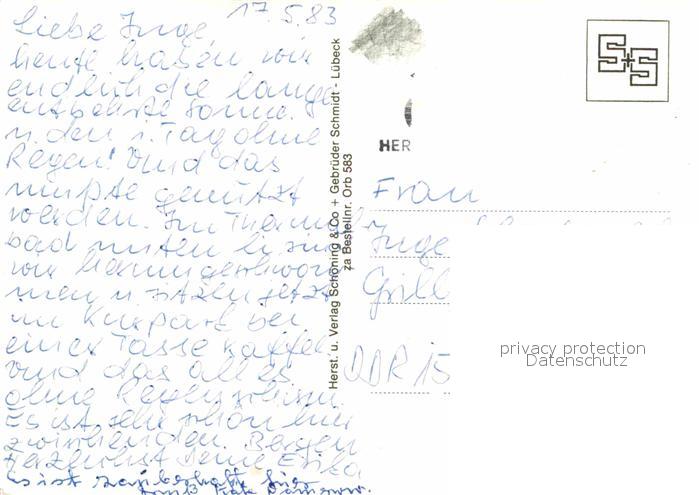 17.5.83
Liebe Inge,
heute haben wir
endlich die lang
entbehrte Sonne
u. den 1. Tag ohne
Regen! Und das
mußte genutzt
werden. Im Thermal
bad sind
wir herumgeschwom
men u. sitzen jetzt
im Kurpark bei
einer Tasse Kaffee
und das alles
ohne Regenschirm.
Es ist sehr schön hier
zwischen den Bergen
Herzlichst Deine Erika
Es ist zauberhaft hier
Herst. u. Verlag Schöning & Co + Gebrüder Schmidt - Lübeck
za Bestellnr. Orb 583
S+S
HER
Frau
Inge
Grill
DDR 15
privacy protection
Datenschutz